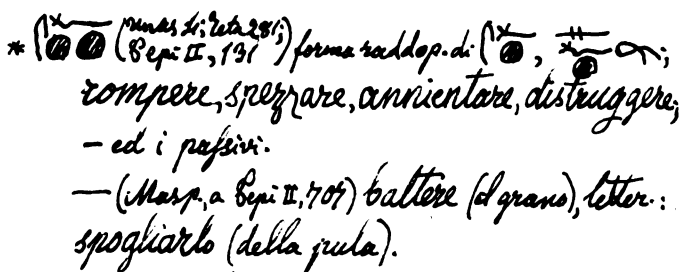 * (Unas Teta 281;
Pepi II, 131) forma raddop. di , ;
rompere, spezzare, annientare, distruggere;
– ed i passivi.
— (Masp., a Pepi II, ) battere (il grano), letter.:
spogliarlo (della pula).